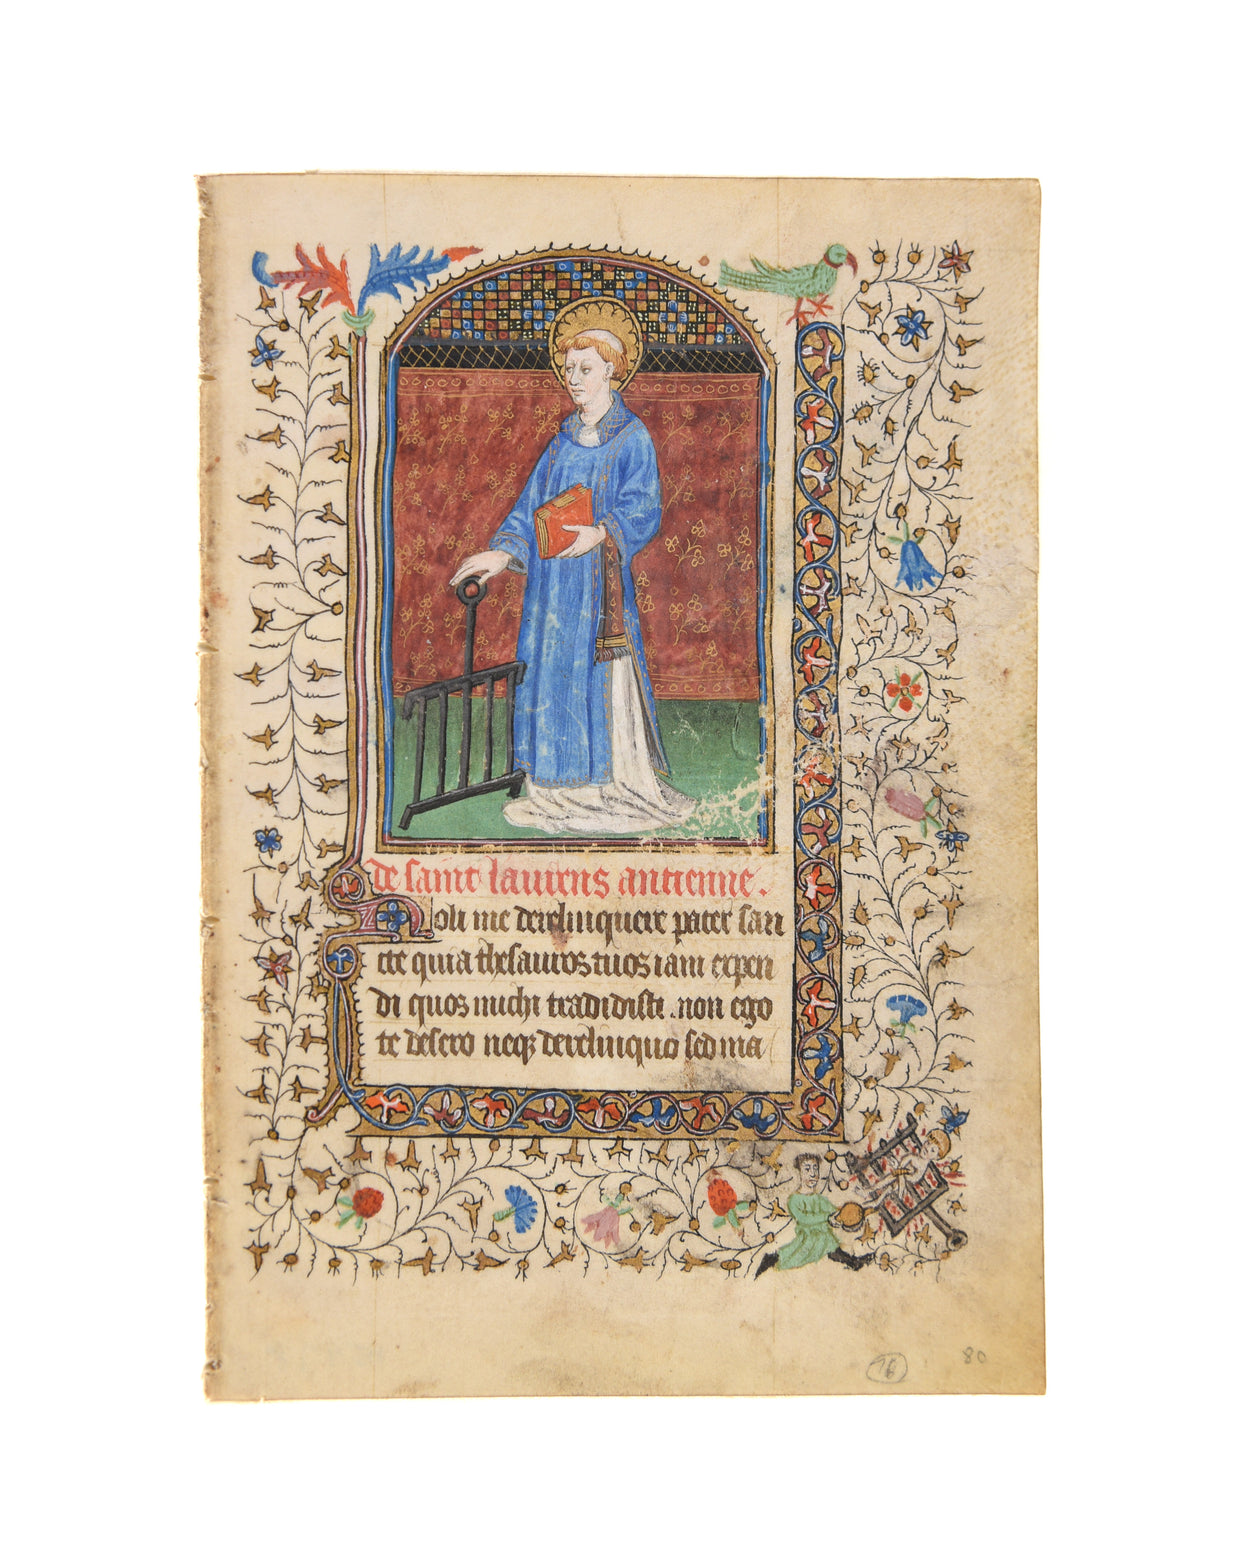 de saint laurens antienne.
Noli me derelinquere pater san
cte quia thesauros tuos iam expen
di quos michi tradidisti. non ego
te desero neqз derelinquo sed ma
16
80